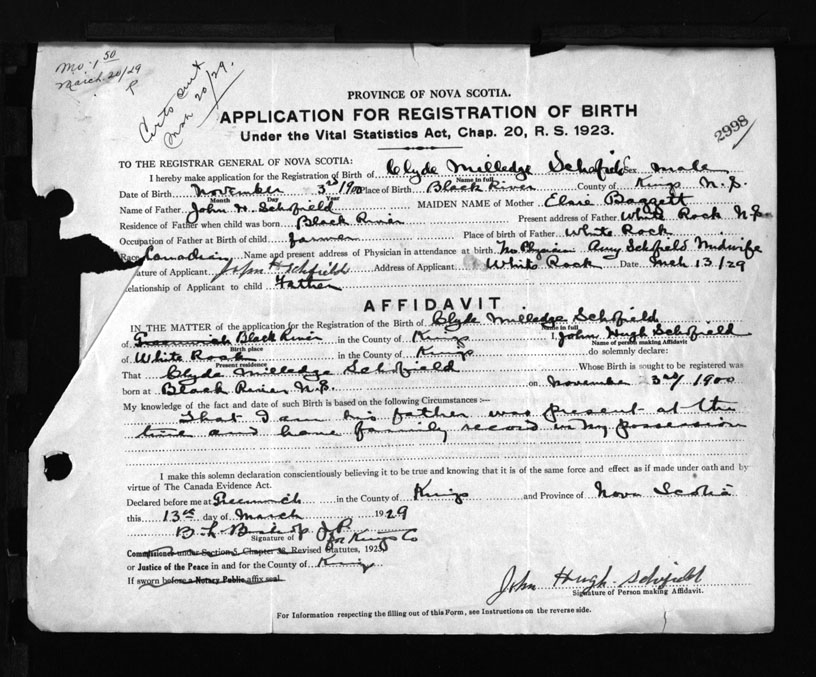 Mo. 1.50
March 20/29
P
Certs sent
Mch 20/29.
2998
PROVINCE OF NOVA SCOTIA.
APPLICATION FOR REGISTRATION OF BIRTH
Under the Vital Statistics Act, Chap. 20, R. S. 1923.
TO THE REGISTRAR GENERAL OF NOVA SCOTIA:
I hereby make application for the Registration of Birth of Clyde Milledge Schofield Sex Male
Name in full
Date of Birth November 3rd 1900 Place of Birth Black River County of Kings N. S.
Month Day Year
Name of Father John H. Schofield MAIDEN NAME of Mother Elsie Baggett
Residence of Father when child was born Black River Present address of Father White Rock N.S.
Occupation of Father at Birth of child farmer Place of birth of Father White Rock
Race Canadian Name and present address of Physician in attendance at birth No Physician Amy Schofield Midwife
ature of Applicant John H Schofield Address of Applicant White Rock Date Mch 13/29
Relationship of Applicant to child Father
AFFIDAVIT
IN THE MATTER of the application for the Registration of the Birth of Clyde Milledge Schofield
Name in full
of Greenwich Black River in the County of Kings I, John Hugh Schofield
Birth place Name of person making Affidavit
of White Rock in the County of Kings do solemnly declare:
Present residence
That Clyde Milledge Schofield Whose Birth is sought to be registered was
born at Black River N.S. on November 3rd 1900
My knowledge of the fact and date of such Birth is based on the following Circumstances :—
That I am his father was present at the
time and have family record in my possession
I make this solemn declaration conscientiously believing it to be true and knowing that it is of the same force and effect as if made under oath and by
virtue of The Canada Evidence Act.
Declared before me at Greenwich in the County of Kings and Province of Nova Scotia
this 13th day of March 1929
B. L. Bishop J P
Signature of for Kings Co
Commissioner under Section 5, Chapter 38, Revised Statutes, 1923
or Justice of the Peace in and for the County of Kings
If sworn before a Notary Public affix seal.
John Hugh Schofield
Signature of Person making Affidavit.
For Information respecting the filling out of this Form, see Instructions on the reverse side.